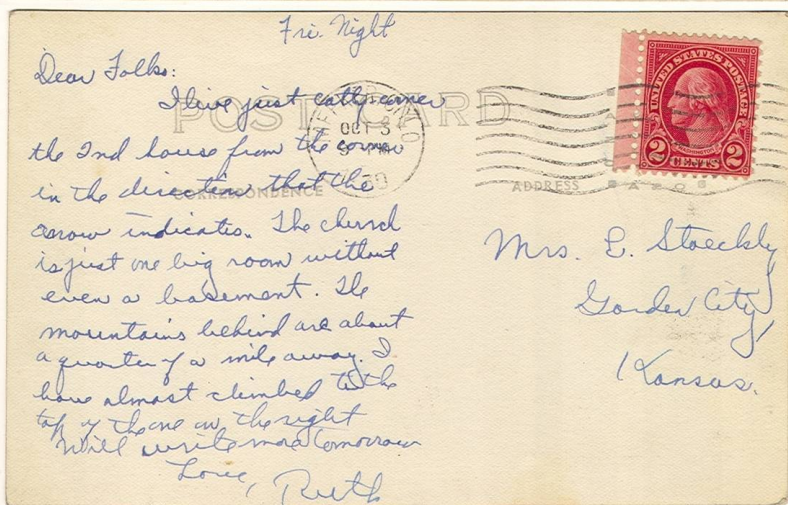 Fri. Night
Dear Folks:
I live just catty corner
the 2nd house from the corner
in the direction that the
arrow indicates. The church
is just one big room without
even a basement. The
mountains behind are about
a quarter of a mile away. I
have almost climbed to the
top of the one on the right
Will write more tomorrow
Love, Ruth
POST CARD
CORRESPONDENCE
ADDRESS
OCT 3
PM
UNITED STATES POSTAGE
2 CENTS 2
Mrs. E. Stoeckly
Garden City,
Kansas.